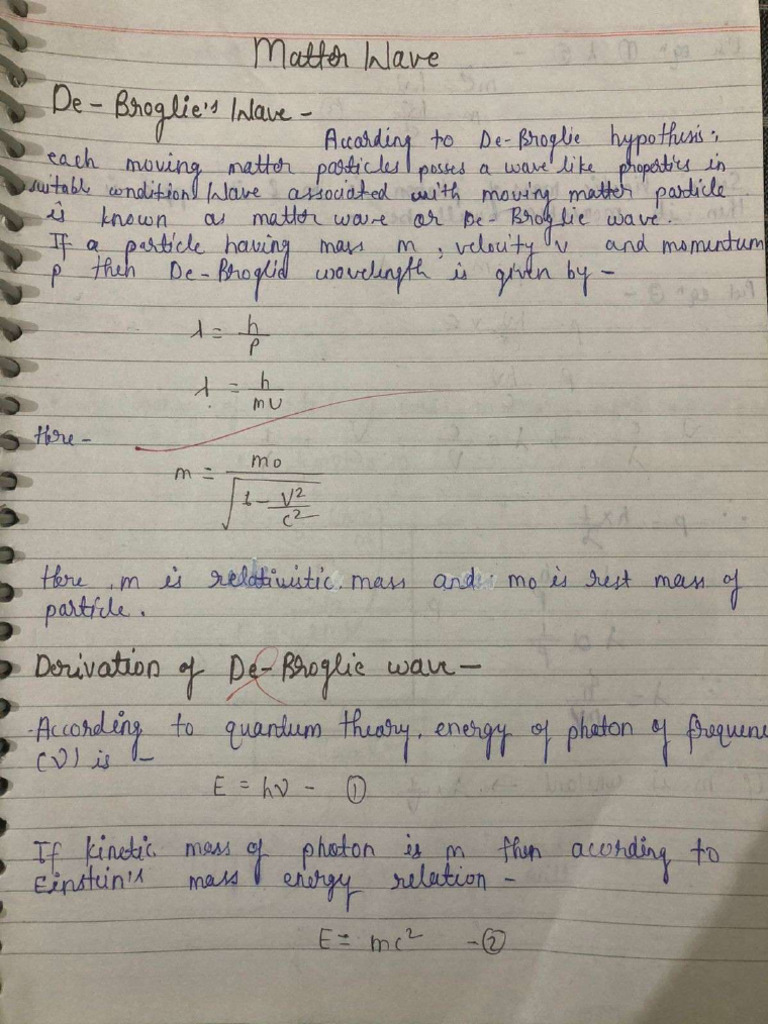 Matter Wave
De-Broglie's Wave -
According to De-Broglie hypothesis;
each moving matter particles posses a wave like properties in
suitable condition. Wave associated with moving matter particle
is known as matter wave or De-Broglie wave.
If a particle having mass m, velocity v and momentum
p then De-Broglie wavelength is given by -
λ = h/p
λ = h/mv
Here -
m = mo/√(1 - v²/c²)
Here, m is relativistic mass and mo is rest mass of
particle.
Derivation of De-Broglie wave -
According to quantum theory, energy of photon of frequenc
(ν) is -
E = hν - ①
If kinetic mass of photon is m then acording to
Einstein's mass energy relation -
E = mc² - ②